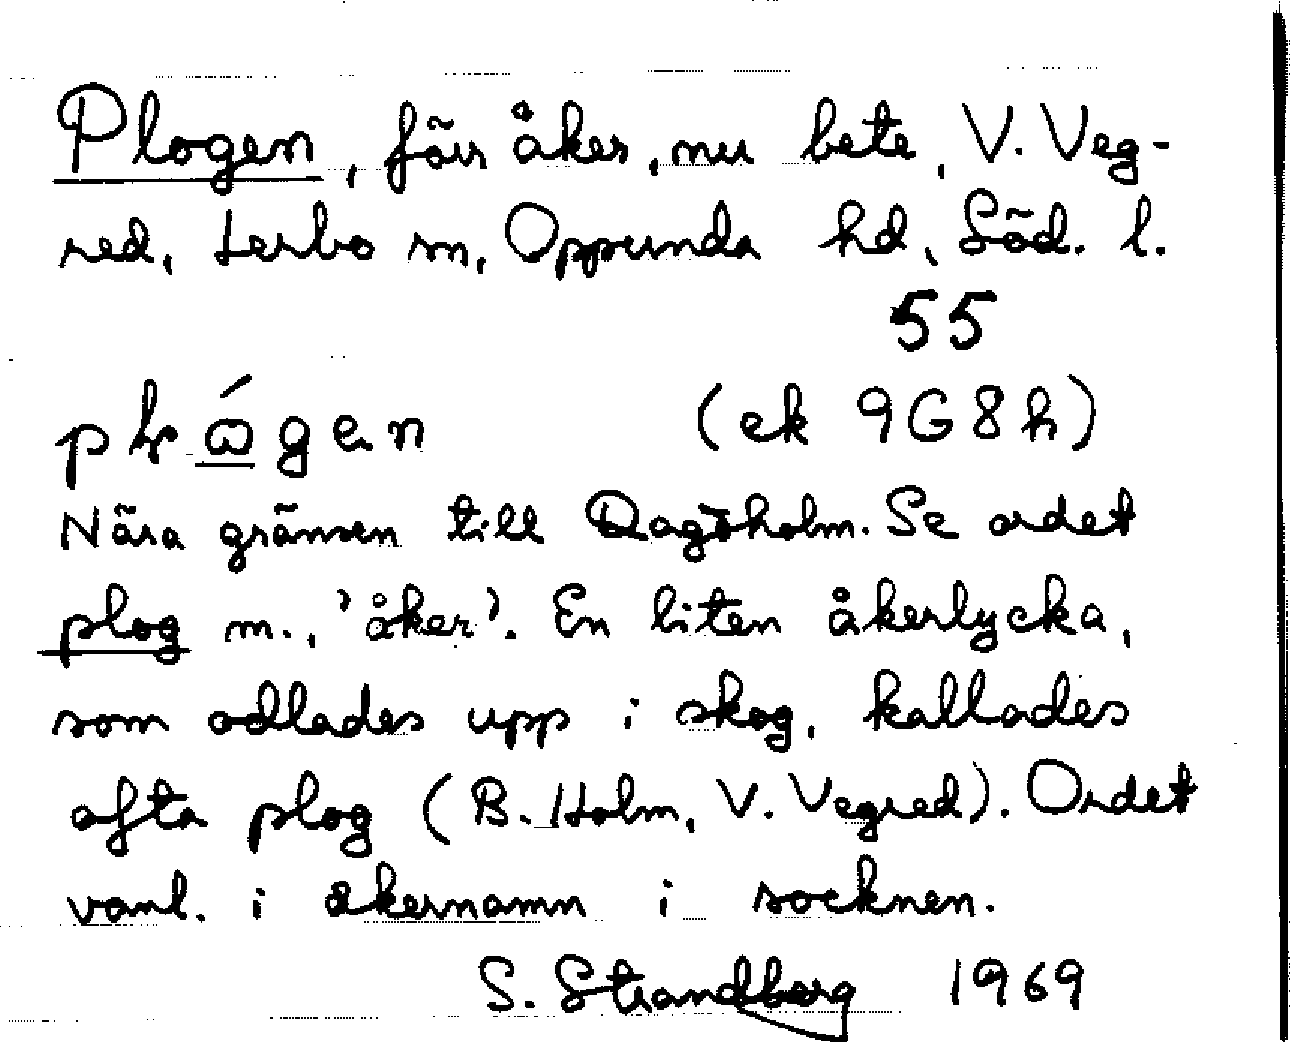 Plogen, förr åker, nu bete, V. Veg-
red, Lerbo sn, Oppunda hd, Söd. l.
55
(ek 9G8h)
Nära gränsen till Dagöholm. Se ordet
plog m., 'åker'. En liten åkerlycka,
som odlades upp i skog, kallades
ofta plog (B. Holm, V. Vegred). Ordet
vanl. i åkernamn i socknen.
S. Strandberg 1969